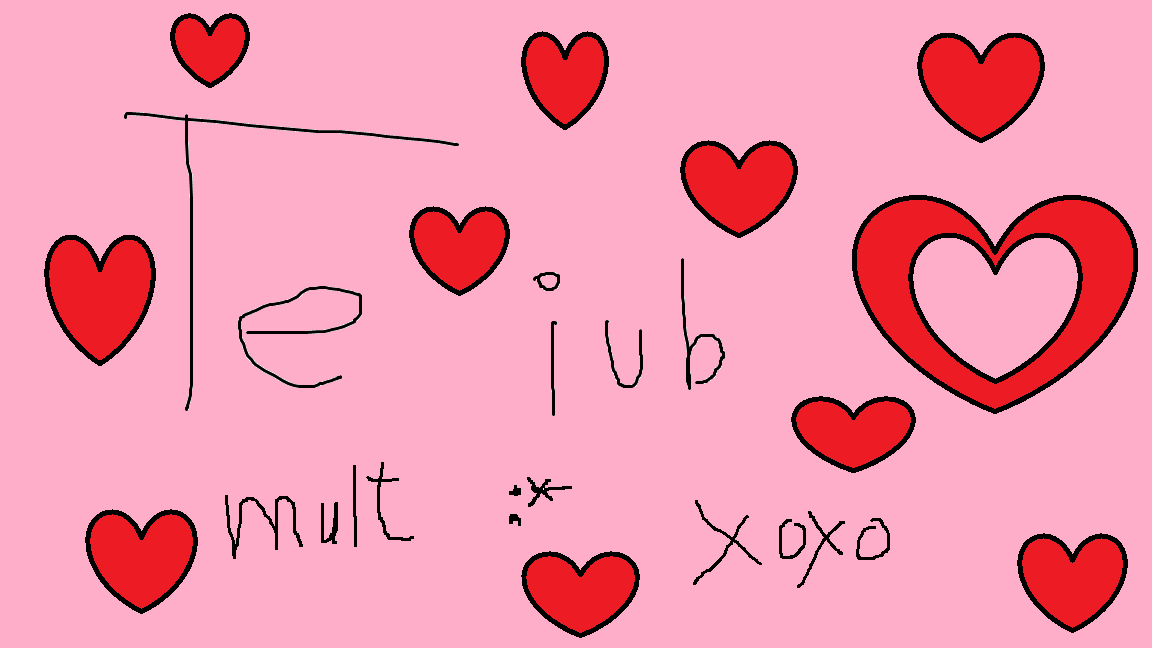 Te iub
mult :* xoxo